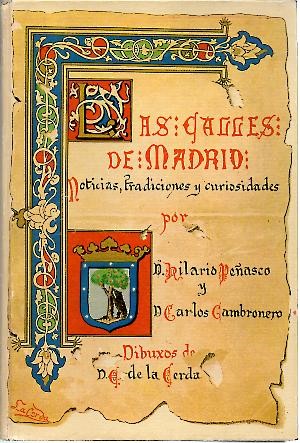 LAS: CALLES:
DE: MADRID:
Noticias, tradiciones y curiosidades
por
D. Hilario Peñasco
y
D. Carlos Cambronero
Dibuxos de
D. C. de la Cerda
LaCerda